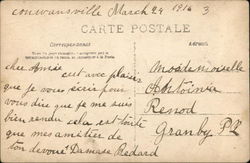 Cowansville March 29 1916 3
CARTE POSTALE
Correspondance
Adresse
cher Amie
c'est avec plaisir
que je vous écris pour
vous dire que je me suis
bien rendu cela est toute
que mes amitier de
ton devoué Damase Bedard
Mademoiselle
Antoinia
Renod
Granby P2